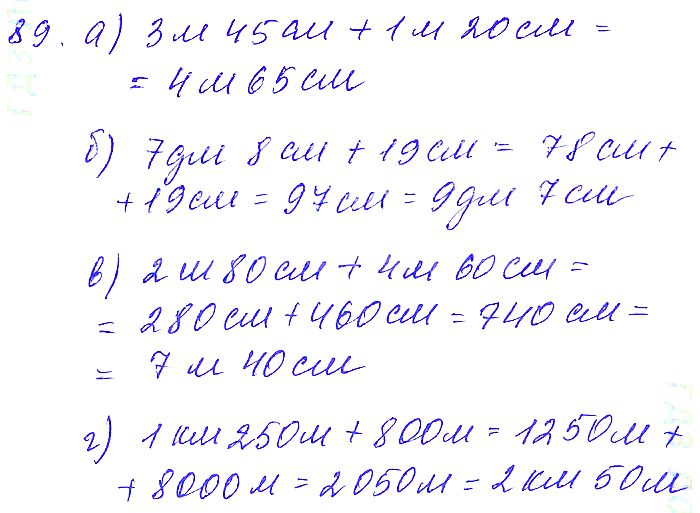 89. а) 3 м 45 см + 1 м 20 см =
= 4 м 65 см
б) 7 дм 8 см + 19 см = 78 см +
+ 19 см = 97 см = 9 дм 7 см
в) 2 м 80 см + 4 м 60 см =
= 280 см + 460 см = 740 см =
= 7 м 40 см
г) 1 км 250 м + 800 м = 1250 м +
+ 8000 м = 2050 м = 2 км 50 м